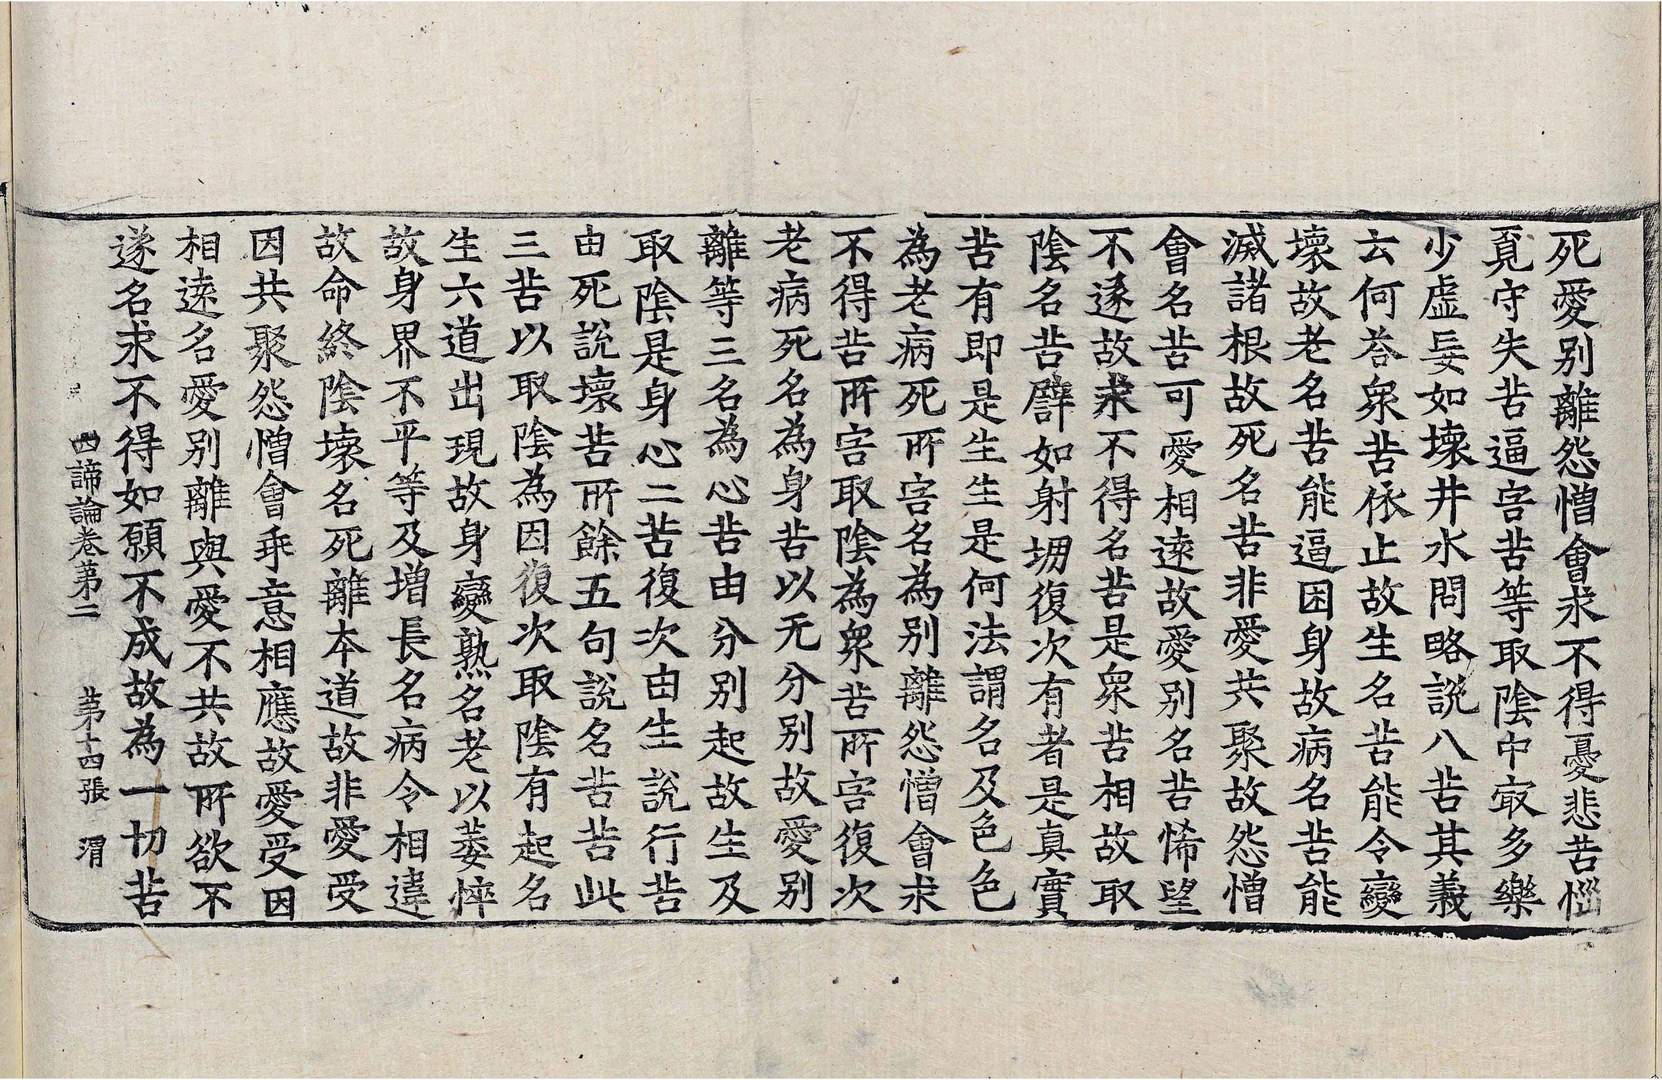 死愛別離怨憎會求不得憂悲苦惱
覓守失苦逼害苦苦等取陰中㝡多樂
少虛妄如壞井水問略說八苦其義
云何荅衆苦依止故生名苦能令變
壞故老名苦能逼困身故病名苦能
滅諸根故死名苦非愛共聚故怨憎
會名苦可愛相遠故愛別名苦悕望
不遂故求不得名苦是衆苦相故取
陰名苦譬如射堋復次有者是真實
苦有即是生生是何法謂名及色色
為老病死所害名為別離怨憎會求
不得苦所害取陰為衆苦所害復次
老病死名為身苦以无分別故愛別
離等三名為心苦由分別起故生及
取陰是身心二苦復次由生說行苦
由死說壞苦所餘五句說名苦苦此
三苦以取陰為因復次取陰有起名
生六道出現故身變熟名老以萎悴
故身界不平等及增長名病令相違
故命終陰壞名死離本道故非愛受
因共聚怨憎會乖意相應故愛受因
相遠名愛別離與愛不共故所欲不
遂名求不得如願不成故為一切苦
四諦論卷第二 第十四張 渭